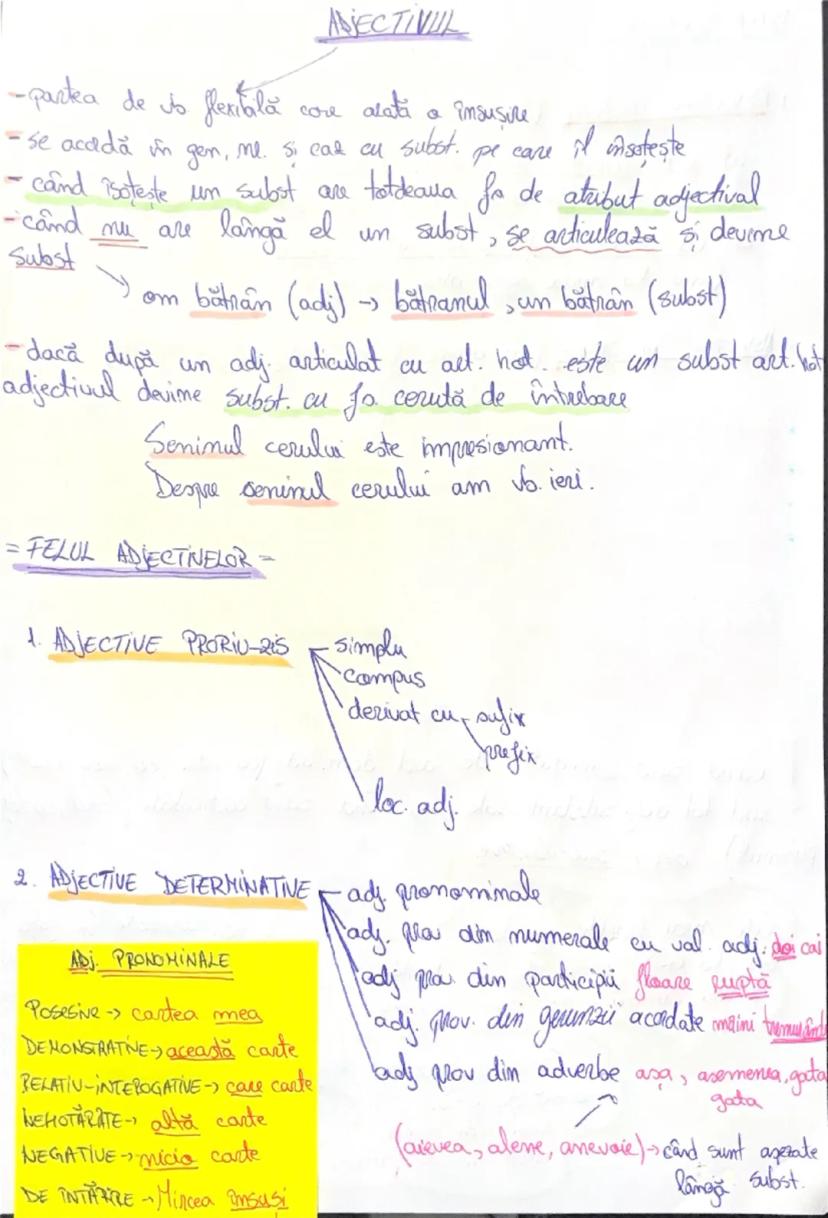 ADJECTIVUL
- partea de vb flexibilă care arată o însușire
- se acordă în gen, nr. și caz cu subst. pe care îl însoțește
- când îsoțește un subst are totdeauna fc de atribut adjectival
- când nu are lângă el un subst, se articulează și devine
subst
om bătrân (adj) → bătrânul, un bătrân (subst)
- dacă după un adj. articulat cu art. hot. este un subst art. hot
adjectivul devine subst. cu fc cerută de întrebare
Seninul cerului este impresionant.
Despre seninul cerului am vb. ieri.
= FELUL ADJECTIVELOR =
1. ADJECTIVE PRORIU-ZIS
simplu
compus
derivat cu sufix
prefix
loc. adj.
2. ADJECTIVE DETERMINATIVE
adj. pronominale
adj. prov din numerale cu val. adj. doi cai
adj prov. din participii floare ruptă
adj. prov. din gerunzii acordate mâini tremurânde
adj prov din adverbe așa, asemenea, gata
gata
(aievea, alene, anevoie) → când sunt așezate
lângă subst.
ADJ. PRONOMINALE
POSESIVE → cartea mea
DEMONSTRATIVE → această carte
RELATIV-INTEROGATIVE → care carte
NEHOTĂRÂTE → altă carte
NEGATIVE → nicio carte
DE ÎNTĂRIRE → Mircea însuși